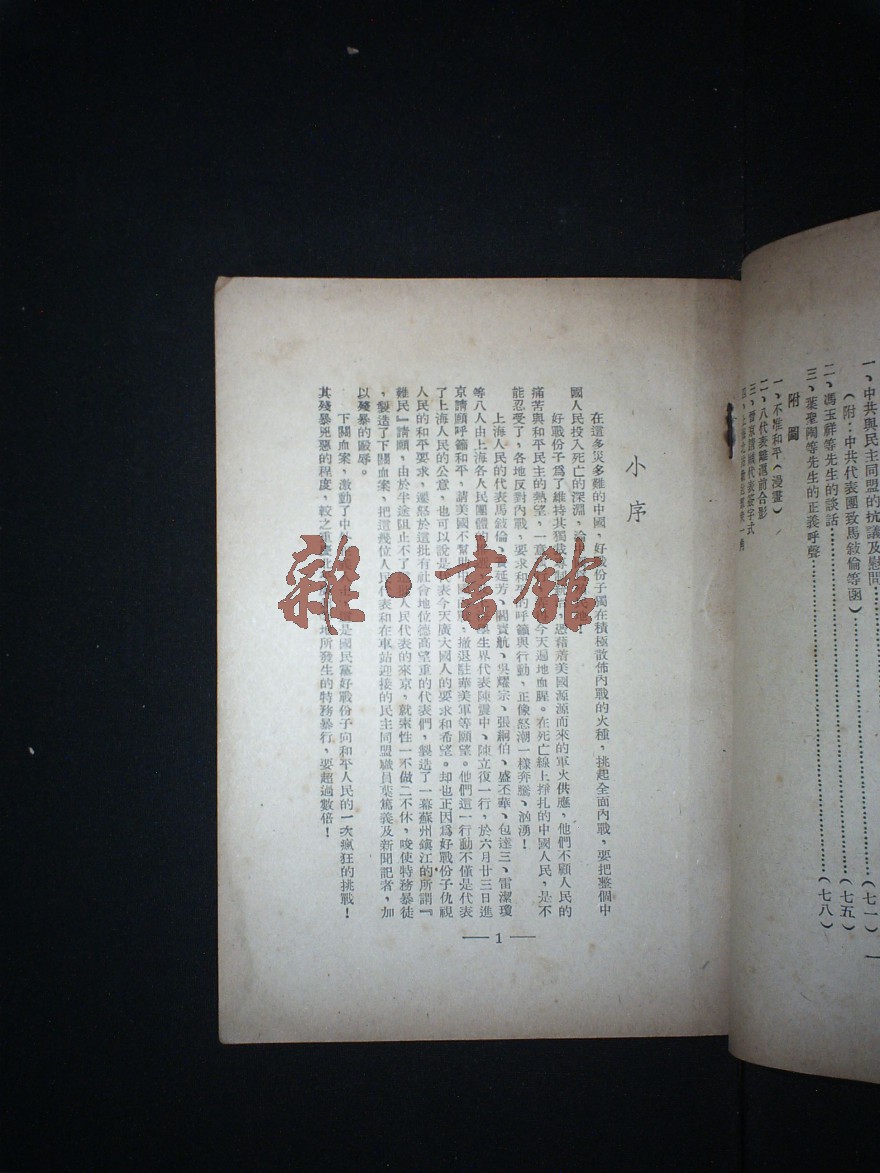 一、中共與民主同盟的抗議及慰問……………………(七一)
(附:中共代表團致馬敍倫等函)
二、馮玉祥等先生的談話……………………(七五)
三、葉聖陶等先生的正義呼聲……………………(七八)
附圖
一、不准和平(漫畫)
二、八代表離滬前合影
三、晉京請願代表簽字式
小序
在這多災多難的中國,好戰份子獨在積極散佈內戰的火種,挑起全面內戰,要把整個中
國人民投入死亡的深淵,
好戰份子爲了維持其獨 憑藉着美國源源而來的軍火供應,他們不顧人民的
痛苦與和平民主的熱望,一意 今天遍地血腥。在死亡線上掙扎的中國人民,是不
能忍受了,各地反對內戰,要求和 的呼籲與行動,正像怒潮一樣奔騰、洶湧!
上海人民的代表馬敍倫、黃延芳、閻寶航、吳耀宗、張絅伯、盛丕華、包達三、雷潔瓊
等八人由上海各人民團體的 學生界代表陳震中、陳立復一行,於六月廿三日進
京請願呼籲和平,請美國不幫助中國內戰,撤退駐華美軍等願望。他們這一行動不僅是代表
了上海人民的公意,也可以說是代表今天廣大國人的要求和希望。却也正因爲好戰份子仇視
人民的和平要求,遷怒於這批有社會地位德高望重的代表們,製造了一幕蘇州鎮江的所謂『
難民』請願,由於半途阻止不了 人民代表的來京,就索性一不做二不休,唆使特務暴徒
,製造了下關血案,把這幾位人民代表和在車站迎接的民主同盟職員葉篤義及新聞記者,加
以殘暴的毆辱。
下關血案,激動了中外 是國民黨好戰份子向和平人民的一次瘋狂的挑戰!
其殘暴兇惡的程度,較之重慶 地所發生的特務暴行,要超過數倍!
— 1 —
雜·書館